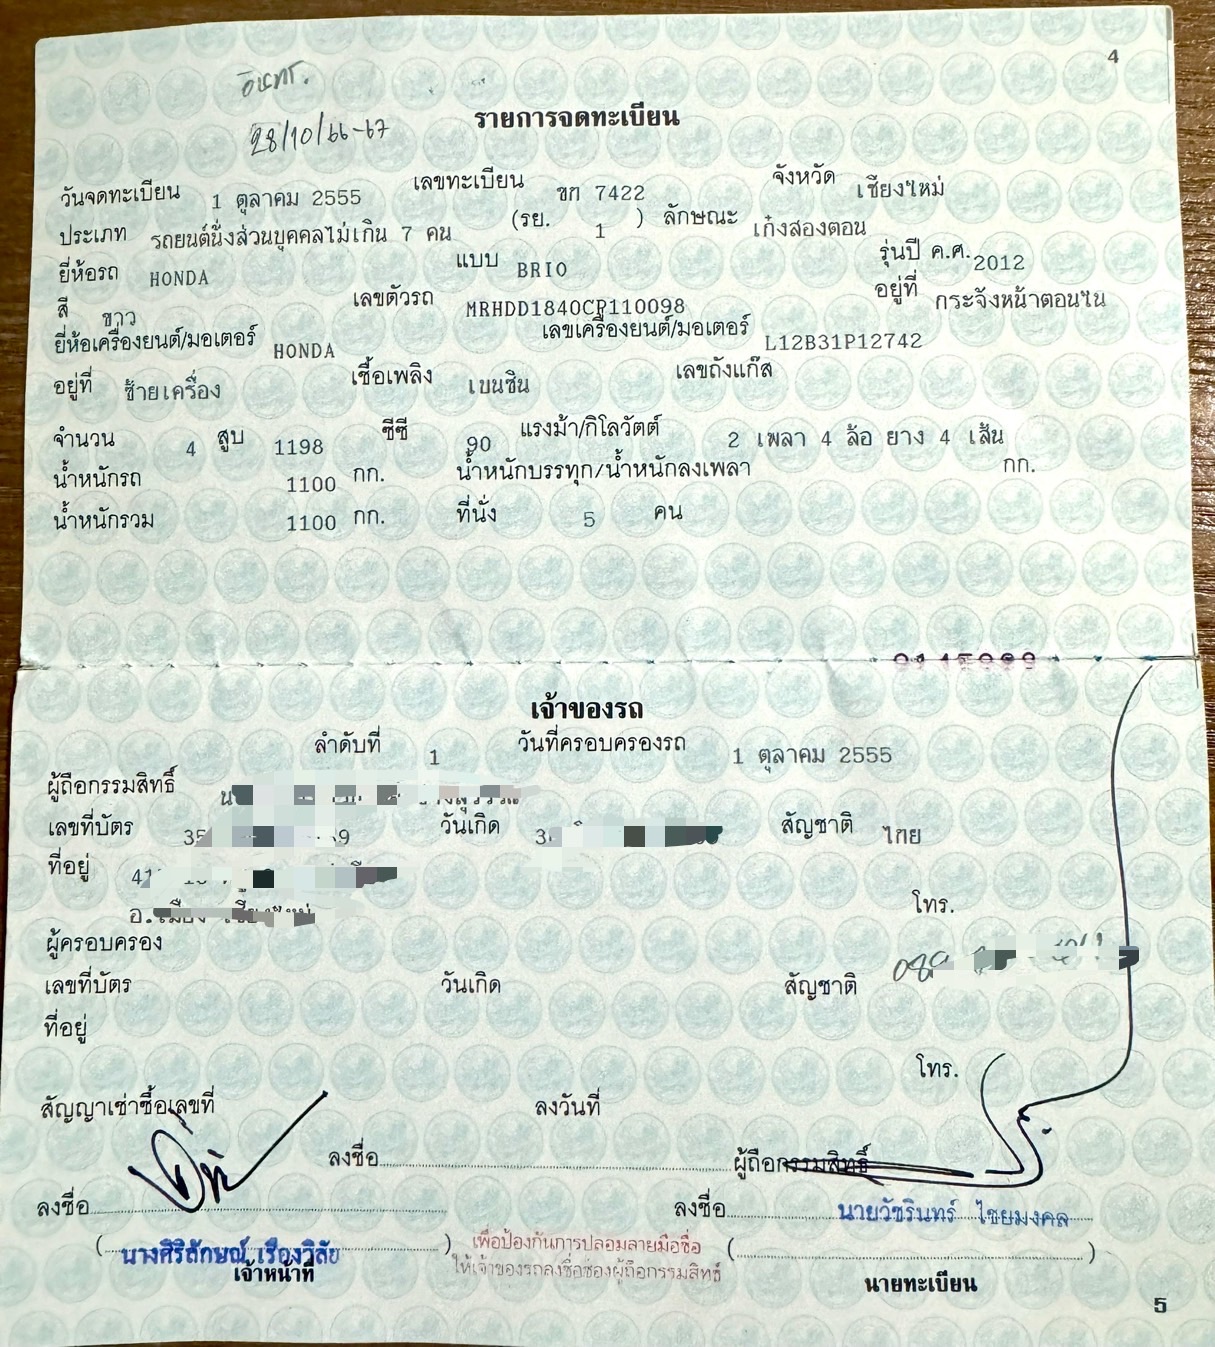 4
28/10/66-67
รายการจดทะเบียน
วันจดทะเบียน 1 ตุลาคม 2555 เลขทะเบียน ขก 7422 จังหวัด เชียงใหม่
ประเภท รถยนต์นั่งส่วนบุคคลไม่เกิน 7 คน (รย. 1 ) ลักษณะ เก๋งสองตอน
ยี่ห้อรถ HONDA แบบ BRIO รุ่นปี ค.ศ. 2012
สี ขาว เลขตัวรถ MRHDD1840CP110098 อยู่ที่ กระจังหน้าตอนใน
ยี่ห้อเครื่องยนต์/มอเตอร์ HONDA เลขเครื่องยนต์/มอเตอร์ L12B31P12742
อยู่ที่ ซ้ายเครื่อง เชื้อเพลิง เบนซิน เลขถังแก๊ส
จำนวน 4 สูบ 1198 ซีซี 90 แรงม้า/กิโลวัตต์ 2 เพลา 4 ล้อ ยาง 4 เส้น
น้ำหนักรถ 1100 กก. น้ำหนักบรรทุก/น้ำหนักลงเพลา กก.
น้ำหนักรวม 1100 กก. ที่นั่ง 5 คน
เจ้าของรถ
ลำดับที่ 1 วันที่ครอบครองรถ 1 ตุลาคม 2555
ผู้ถือกรรมสิทธิ์
เลขที่บัตร วันเกิด สัญชาติ ไทย
ที่อยู่
อ.เมือง
โทร.
ผู้ครอบครอง
เลขที่บัตร วันเกิด สัญชาติ
ที่อยู่
โทร.
สัญญาเช่าซื้อเลขที่ ลงวันที่
ลงชื่อ ผู้ถือกรรมสิทธิ์
ลงชื่อ ลงชื่อ นายวัชรินทร์ ไชยมงคล
( นางศิริลักษณ์ เรืองวิลัย ) เพื่อป้องกันการปลอมลายมือชื่อ ( )
เจ้าหน้าที่ ให้เจ้าของรถลงชื่อช่องผู้ถือกรรมสิทธิ์ นายทะเบียน
5